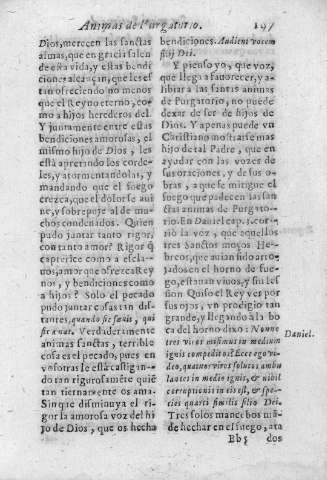 Animas de Purgatorio. 197
Dios, merecen las sanctas
almas, que en gracia salen
de esta vida, y estas bendi
ciones alcançan, que les es
tan ofreciendo no menos
que el Reyno eterno, co-
mo a hijos herederos del.
Y juntamente entre estas
bendiciones amorosas, el
mismo hijo de Dios, les
està apretando los corde-
les, y atormentandolas, y
mandando que el fuego
crezca, que el dolor se aui
ue, y sobrepuje al de mu-
chos condenados. Quien
pudo juntar tanto rigor,
con tanto amor? Rigor q̃
caperlece como a escla-
uos, amor que ofrezca Rey
nos, y bendiciones como
a hijos? Solo el pecado
pudo juntar cosas tan dis-
tantes, quando sic sanis, qui
sic amat. Verdaderamente
animas sanctas, terrible
cosa es el pecado, pues en
vosotras le està castigan-
do tan rigurosamẽte quiẽ
tan tiernamente os ama.
Sin que disminuya el ri-
gor la amorosa voz del hi
jo de Dios, que os hecha
bendiciones. Audient vocem
filij Dei.
Y pienso yo, que voz,
que llega a fauorecer, y a-
liuiar a las santas animas
de Purgatorio, no puede
dexar de ser de hijos de
Dios. Y apenas puede vn
Christiano mostrarse mas
hijo de tal Padre, que en
ayudar con las vozes de
sus oraciones, y de sus o-
bras, a que se mitigue el
fuego que padecen las san
ctas animas de Purgato-
rio. En Daniel cap. 3. cor-
riò la voz, que aquellos
tres Sanctos moços He-
breos, que auian sido arro-
jados en el horno de fue-
go, estauan viuos, y sin les
sion. Quiso el Rey ver por
sus ojos, vn prodigio tan
grande, y llegando à la bo
ca del horno dixo: Nonne
tres viros misimus in medium
ignis compeditos? Ecce ego vi-
deo, quatuor viros solutos, ambu
lantes in medio ignis, & nihil
corruptionis in eis est, & spe-
cies quarti similis filio Dei.
Tres solos mancebos mã-
de hechar en el fuego, ata
Daniel.
Bb 5 dos